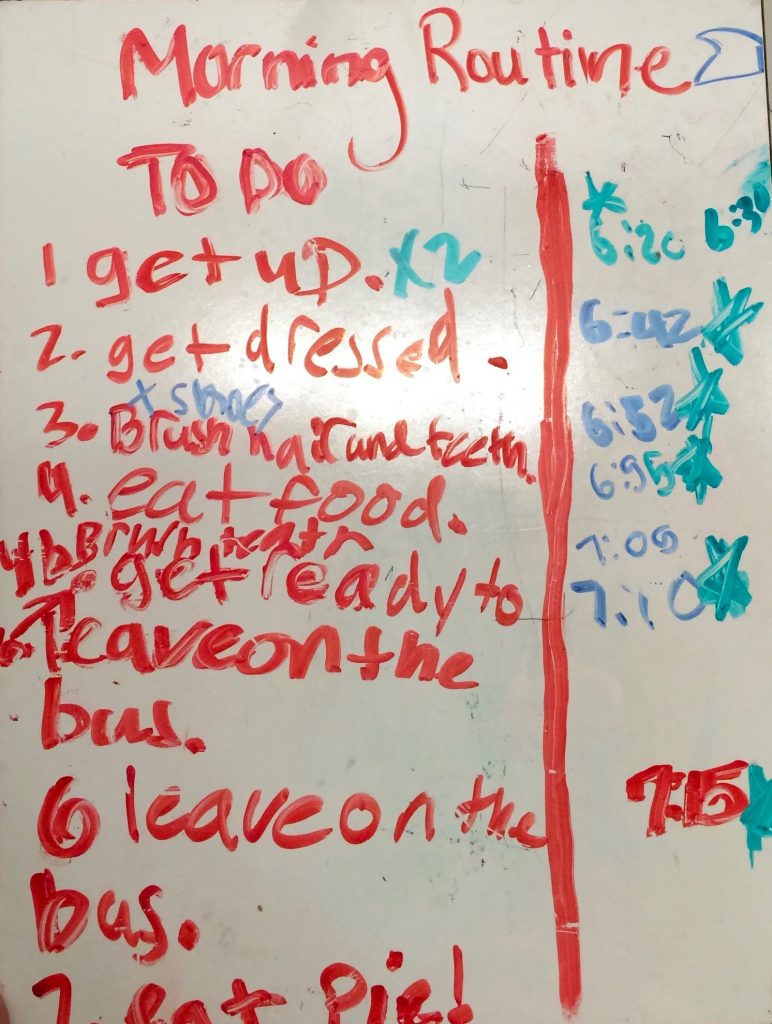 Morning Routine
TO DO
6:20 6:30
1 get up. x2
2. get dressed.
6:42
+ shoes
3. Brush hair and teeth.
6:52
4. eat food.
6:55
4b Brush teath
7:05
get ready to
7:10
leave on the
bus.
7:15
6 leave on the
bus.
7. eat Pie!